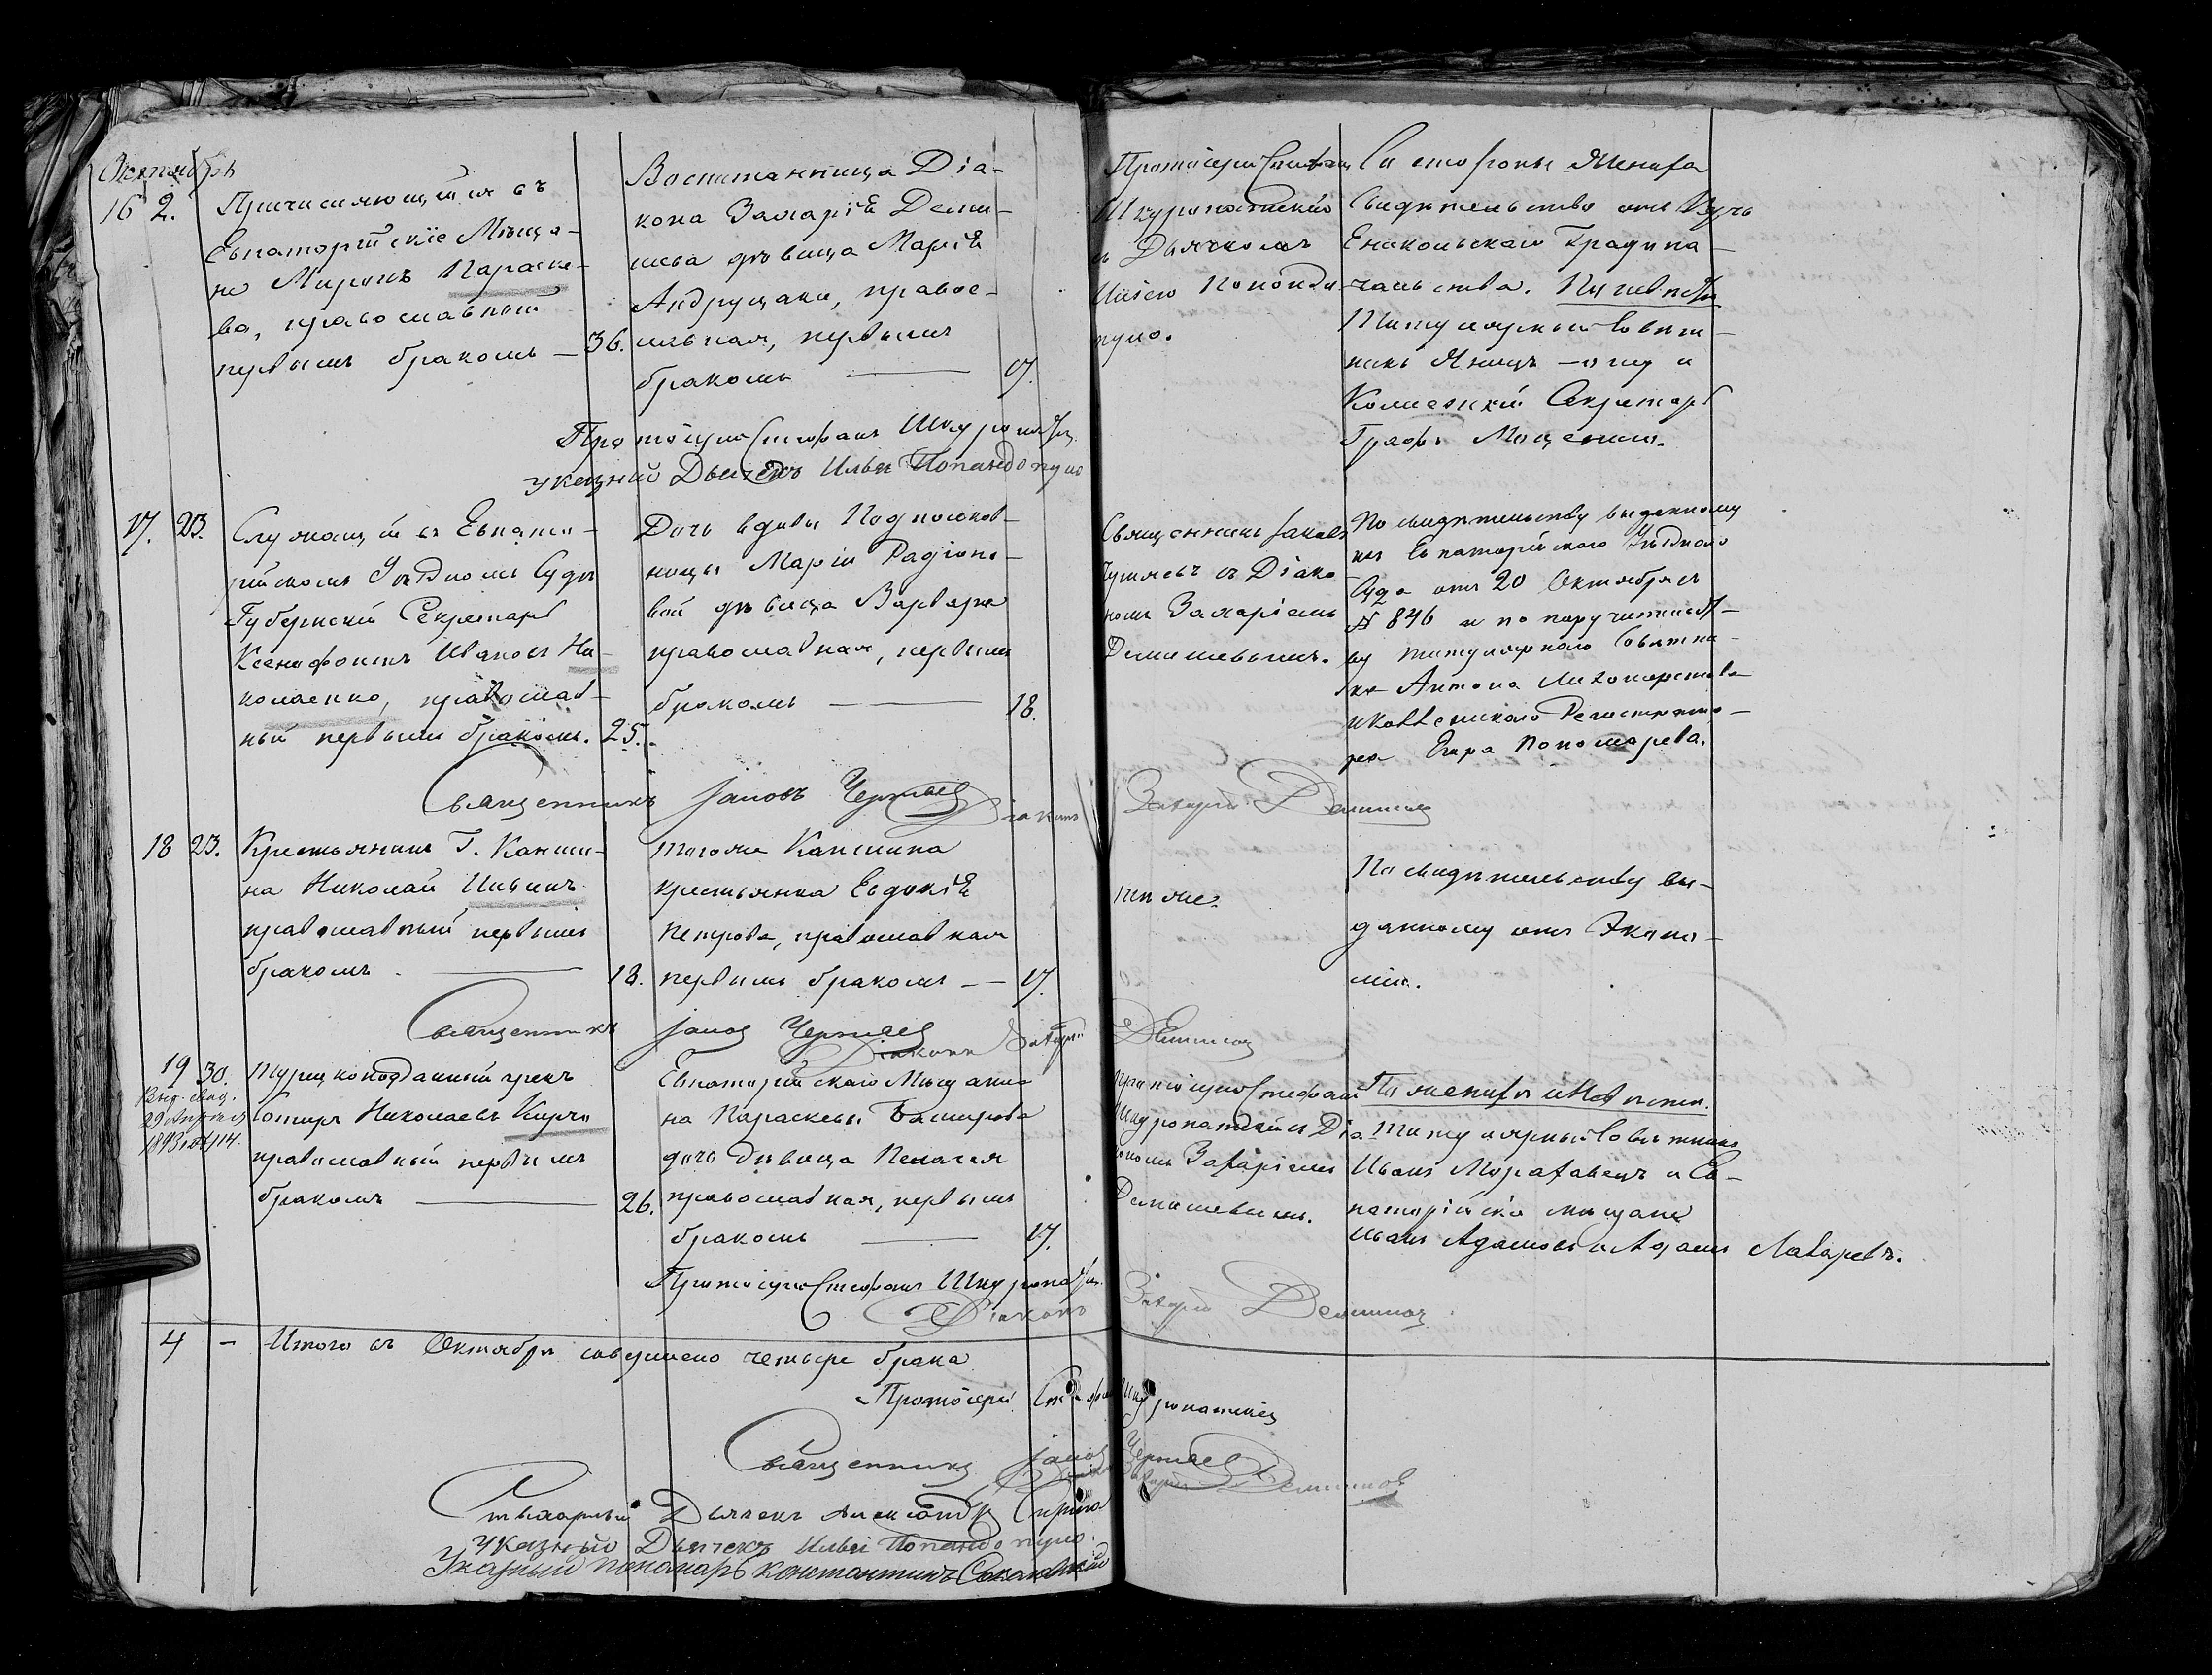 Октябрь
16 2.
Причисляющийся въ
Евпаторийскіе Мѣща-
не Миронъ Параске-
ва, православный
первымъ бракомъ — 36.
Воспитанница Діа-
кона Захарія Деми-
шева дѣвица Марія
Андрущаки, правос-
лавная, первымъ
бракомъ — 17.
Протоіерей Стефанъ
Шкуропатскій
съ Дьячкомъ
Иліею Попандо-
пуло.
Со стороны Жениха
Свидѣтельство отъ Керчь
Еникольскаго Градона-
чальства. По невѣстѣ
Титулярный Совѣт-
никъ Яницъ и
Коллежскій Секретарь
Графъ Моцениго.
Протоіерей Стефанъ Шкуропатскій
указный Дьячекъ Илья Попандопуло
17. 23.
Служащій въ Евпато-
рійскомъ Уѣздномъ Судѣ
Губернскій Секретарь
Ксенофонтъ Ивановъ Ни-
колаенко, православ-
ный первымъ бракомъ. 25.
Дочь вдовы Подполков-
ницы Маріи Радіоно-
вой дѣвица Варвара
православная, первымъ
бракомъ — 18.
Священникъ Іаковъ
Чернаевъ съ Діако-
номъ Захаріемъ
Демишевымъ.
По свидѣтельству выданному
изъ Евпаторійскаго Уѣзднаго
Суда отъ 20 Октября съ
№ 846 и по поручительст-
ву титулярнаго Совѣтни-
ка Антона
и Коллежскаго Регистрато-
ра Егора Пономарева.
Священникъ Іаковъ Чернаевъ
Діаконъ Захарій Демишевъ
18 23.
Крестьянинъ Г. Канши-
на Николай Ильинъ
православный первымъ
бракомъ. — 18.
Тогоже Каншина
крестьянка Евдокія
Петрова, православная
первымъ бракомъ — 17.
тѣ же.
По свидѣтельству вы-
данному отъ Эконо-
міи.
Священникъ Іаковъ Чернаевъ
Діаконъ Захарій Демишевъ
19 30.
Выд. свид.
29 Апрѣля
1843 №114.
Турецкоподданный грекъ
Сотиръ Николаевъ Кирчо
православный первымъ
бракомъ — 26.
Евпаторійскаго Мѣщани-
на Параскевы
дочь дѣвица Пелагея
православная, первымъ
бракомъ — 17.
Протоіерей Стефанъ
Шкуропатскій съ Діа-
кономъ Захаріемъ
Демишевымъ.
По женихѣ и невѣстѣ.
Титулярный Совѣтникъ
Иванъ и Ев-
паторійскіе мѣщане
Иванъ Адамовъ и Адамъ Лазаревъ.
Протоіерей Стефанъ Шкуропатскій.
Діаконъ Захарій Демишевъ
4 — Итого въ Октябрѣ совершено четыре брака
Протоіерей Стефанъ Шкуропатскій
Священникъ Іаковъ Чернаевъ
Діаконъ Захарій Демишевъ
Стихарный Дьячекъ Александръ
Указный Дьячекъ Илья Попандопуло.
Указный пономарь Константинъ